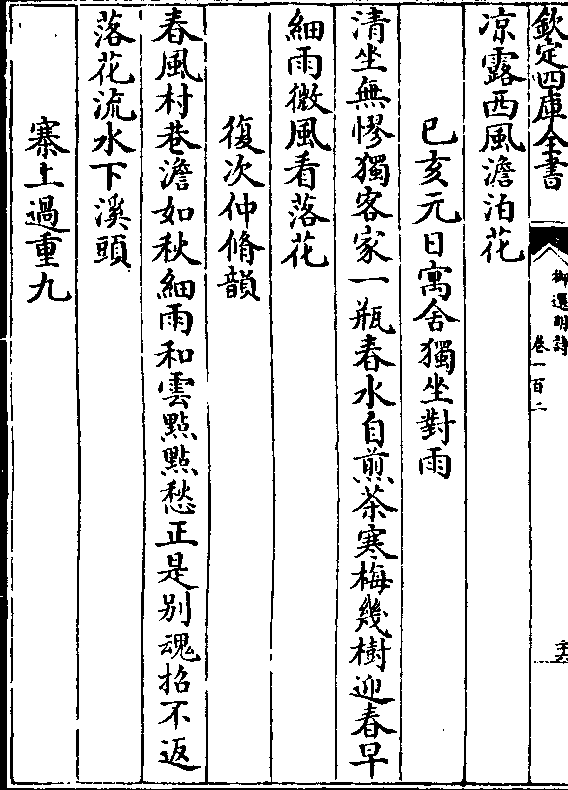 欽定四庫全書
御選明詩
卷一百二
凉露西風澹泊花
己亥元日寓舍獨坐對雨
清坐無憀獨客家一瓶春水自煎茶寒梅幾樹迎春早
細雨微風看落花
復次仲脩韻
春風村巷澹如秋細雨和雲點點愁正是別魂招不返
落花流水下溪頭
寨上過重九